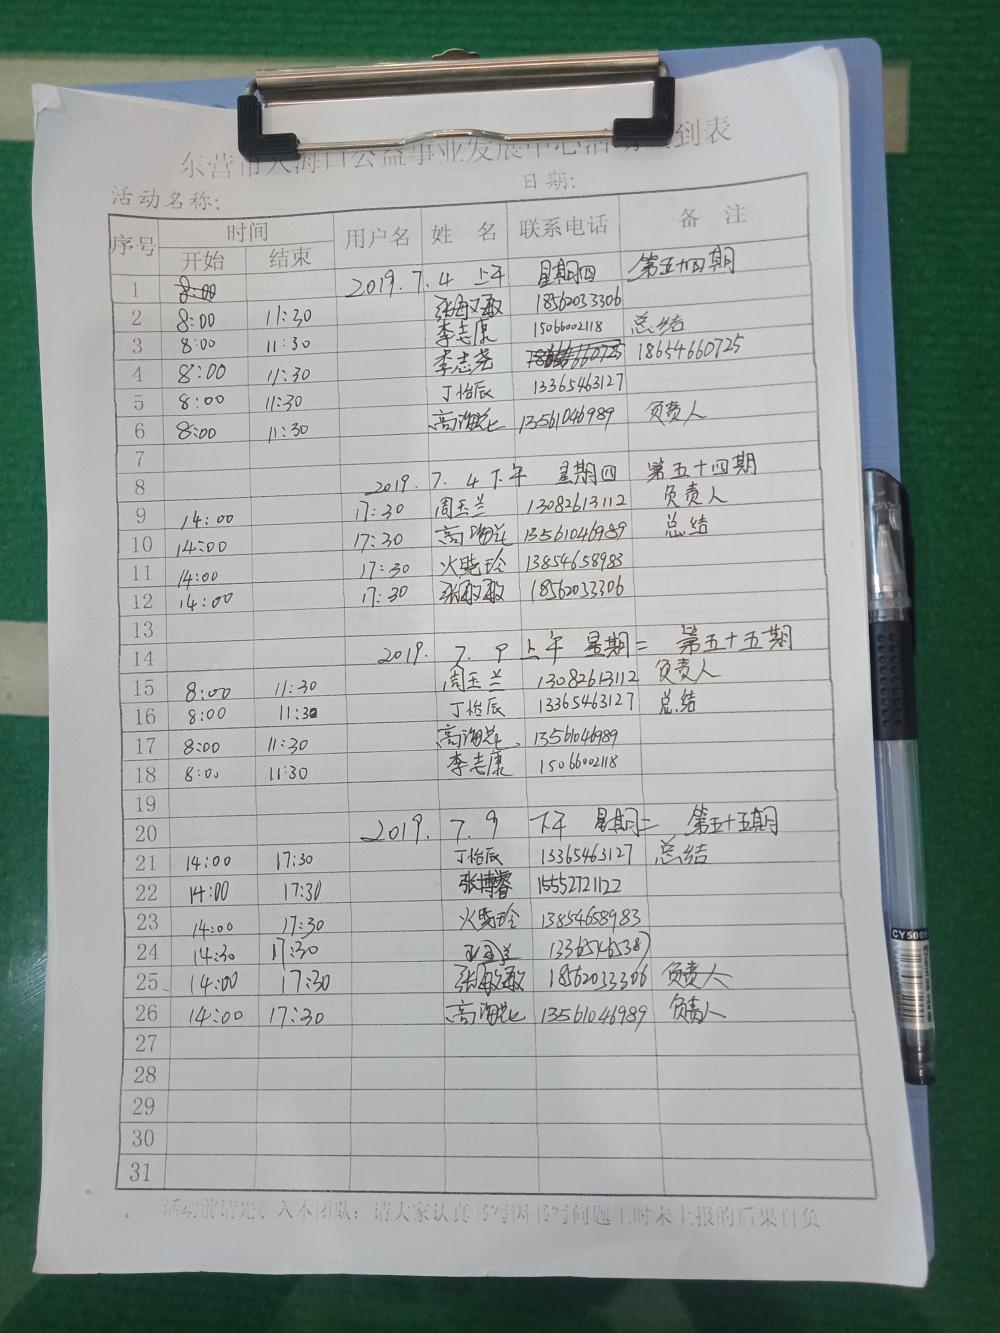 东营市大海口公益事业发展中心活动签到表
活动名称: 日期:
序号 时间 用户名 姓 名 联系电话 备 注
开始 结束
1 8:00 2019.7.4 上午 星期四 第五十四期
2 8:00 11:30 张敏敏 18562033306
3 8:00 11:30 李志康 15066002118 总结
4 8:00 11:30 李志尧 18654660725
5 8:00 11:30 丁怡辰 13365463127
6 8:00 11:30 高海花 13561046989 负责人
7
8 2019.7.4 下午 星期四 第五十四期
9 14:00 17:30 周玉兰 13082613112 负责人
10 14:00 17:30 高海花 13561046989 总结
11 14:00 17:30 火晓玲 13854658983
12 14:00 17:30 张敏敏 18562033306
13
14 2019.7.9 上午 星期二 第五十五期
15 8:00 11:30 周玉兰 13082613112 负责人
16 8:00 11:30 丁怡辰 13365463127 总结
17 8:00 11:30 高海花 13561046989
18 8:00 11:30 李志康 15066002118
19
20 2019.7.9 下午 星期二 第五十五期
21 14:00 17:30 丁怡辰 13365463127 总结
22 14:00 17:30 张博睿 15552721122
23 14:00 17:30 火晓玲 13854658983
24 14:30 17:30
25 14:00 17:30 张敏敏 18562033306 负责人
26 14:00 17:30 高海花 13561046989 负责人
27
28
29
30
31
活动前请先加入本团队;请大家认真书写因书写问题工时未上报的后果自负
CY5009